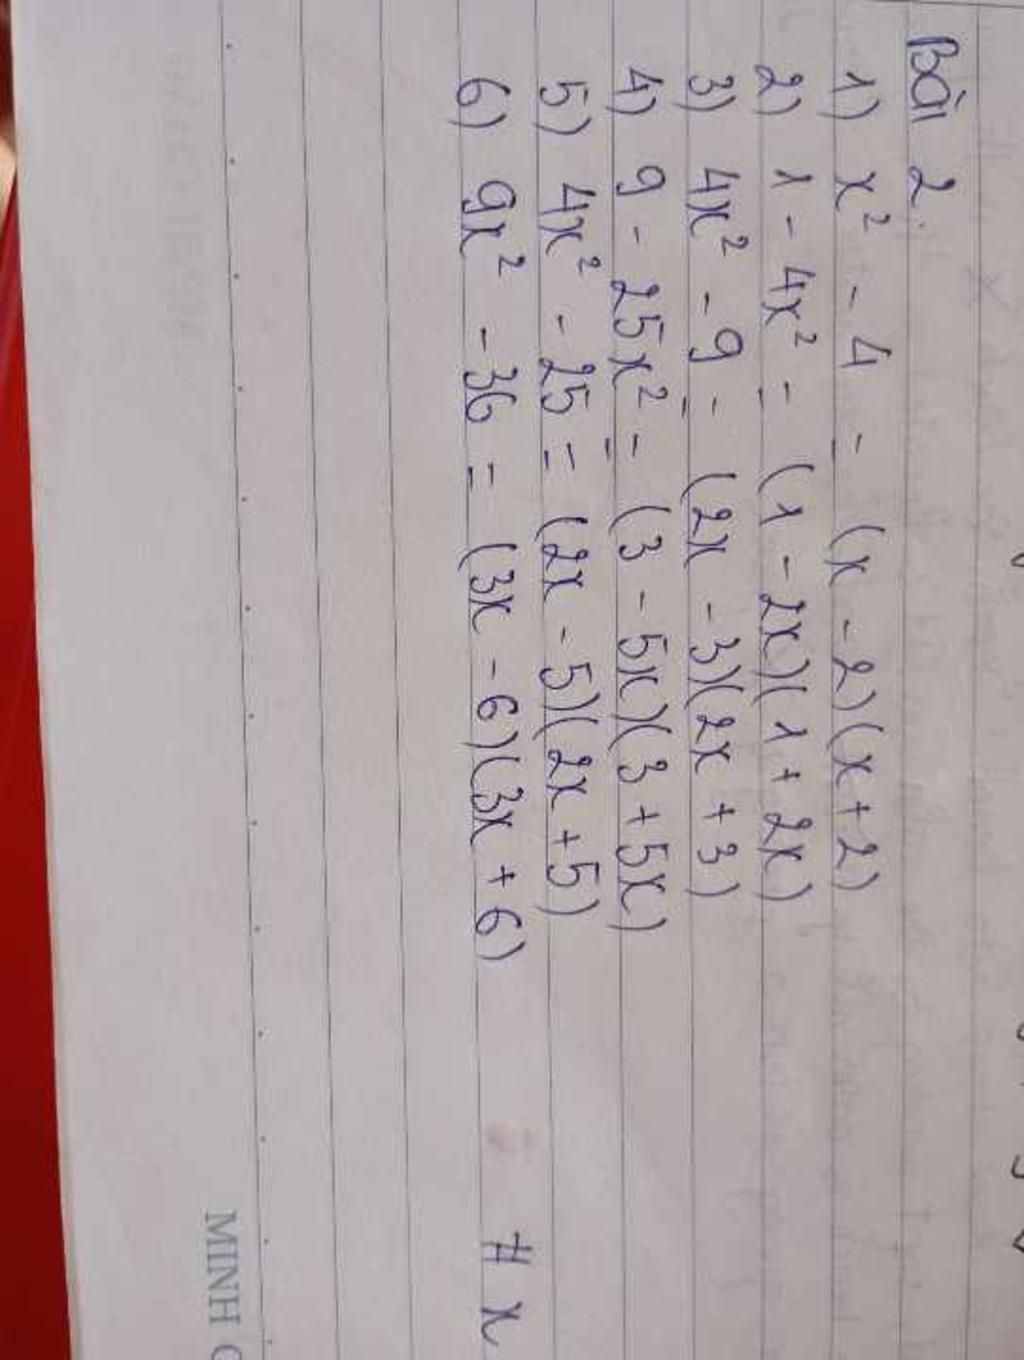 Bài 2.
1) x² - 4 = (x - 2)(x + 2)
2) 1 - 4x² = (1 - 2x)(1 + 2x)
3) 4x² - 9 = (2x - 3)(2x + 3)
4) 9 - 25x² = (3 - 5x)(3 + 5x)
5) 4x² - 25 = (2x - 5)(2x + 5)
6) 9x² - 36 = (3x - 6)(3x + 6)
# x
MINH